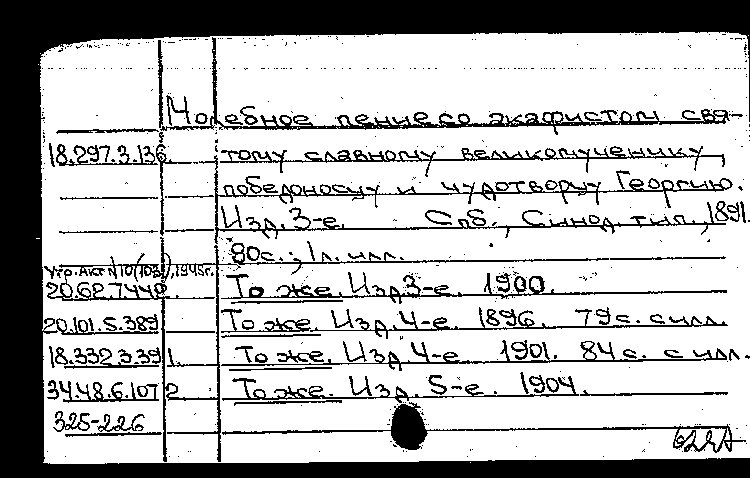 Молебное пение со акафистом свя-
18.297.3.136. тому славному великомученику,
победоносцу и чудотворцу Георгию.
Изд. 3-е. Спб., Синод. тип., 1891.
80с.; 1л. илл.
Утр. Акт N10(1031), 1948г.
20.62.7.440. То же. Изд 3-е. 1900.
20.101.5.389 То же. Изд. 4-е. 1896. 79с. с илл.
18.332.3.39 1. То же. Изд. 4-е. 1901. 84 с. с илл.
34.48.6.107 2 То же. Изд. 5-е. 1904.
325-226